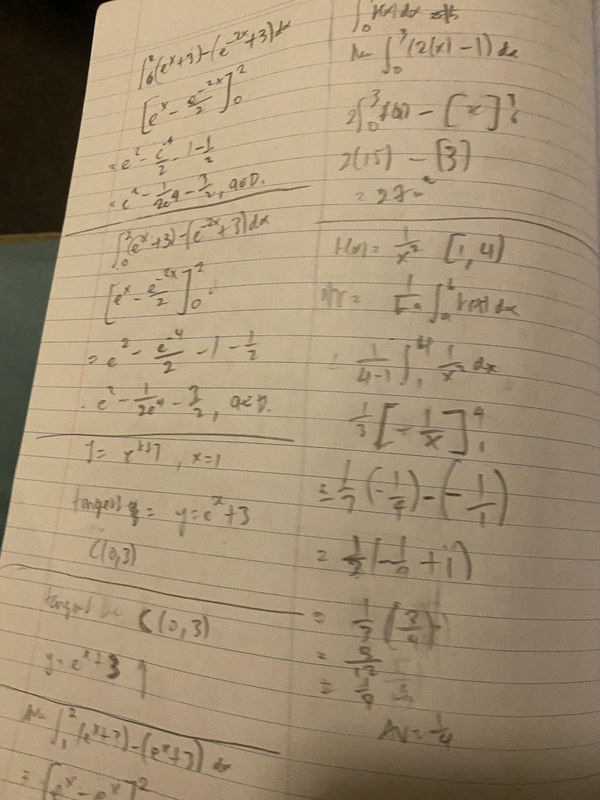 ∫₀²(eˣ+3)-(e⁻²ˣ+3)dx
[eˣ - e⁻²ˣ/2]₀²
= e² - e⁻⁴/2 - 1 - 1/2
= e² - 1/2e⁴ - 3/2, QED.
∫₀²(eˣ+3)-(e⁻²ˣ+3)dx
[eˣ - e⁻²ˣ/2]₀²
= e² - e⁻⁴/2 - 1 - 1/2
e² - 1/2e⁴ - 3/2, QED.
, x=1
tangent = y=eˣ+3
C(0,3)
tangent C(0,3)
y=eˣ+3
∫₁²(eˣ+3)-(eˣ+3)dx
= [eˣ - eˣ]²
∫₀ f(x) dx
∫₀³(2f(x)-1)dx
2∫₀³f(x) - [x]
2(15) - [3]
= 27
f(x) = 1/x² [1,4]
∫ₐᵇ f(x) dx
1/(4-1) ∫₁⁴ 1/x² dx
1/3[-1/x]₁⁴
(-1/4)-(-1/1)
=
= 1/3(3/4)
=
=
AV = 1/4